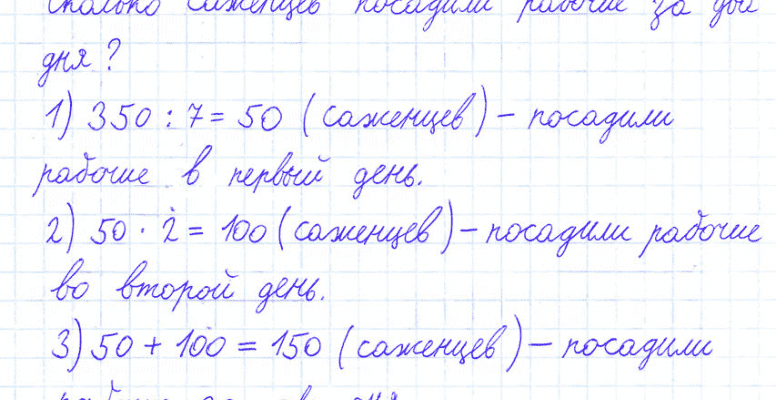 сколько саженцев посадили рабочие за два
дня?
1) 350 : 7 = 50 (саженцев) – посадили
рабочие в первый день.
2) 50 · 2 = 100 (саженцев) – посадили рабочие
во второй день.
3) 50 + 100 = 150 (саженцев) – посадили
рабочие за два дня.